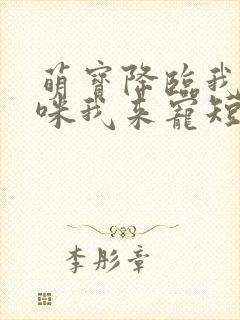 萌寳降臨我
咪我来寵短
李彤章